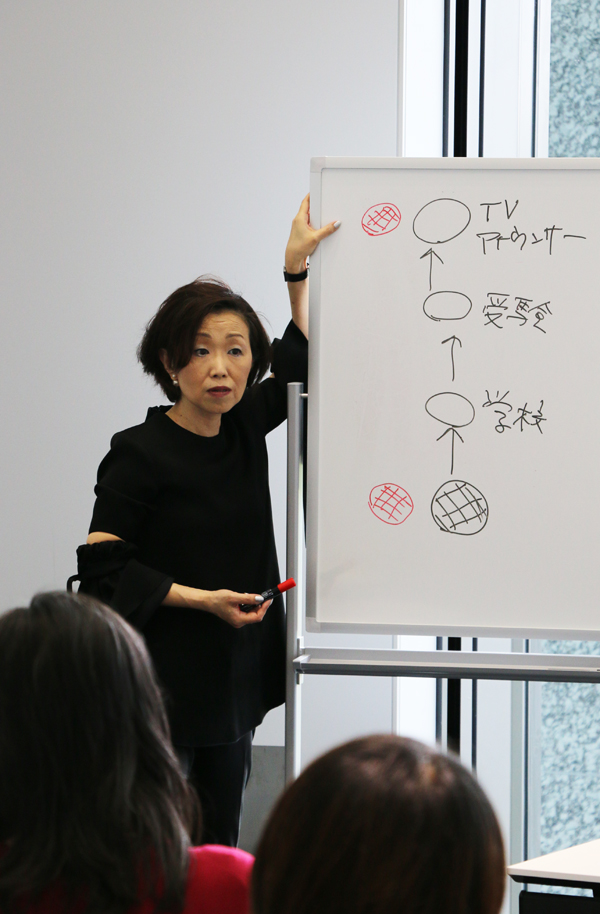 TV
アナウンサー
受験
学校